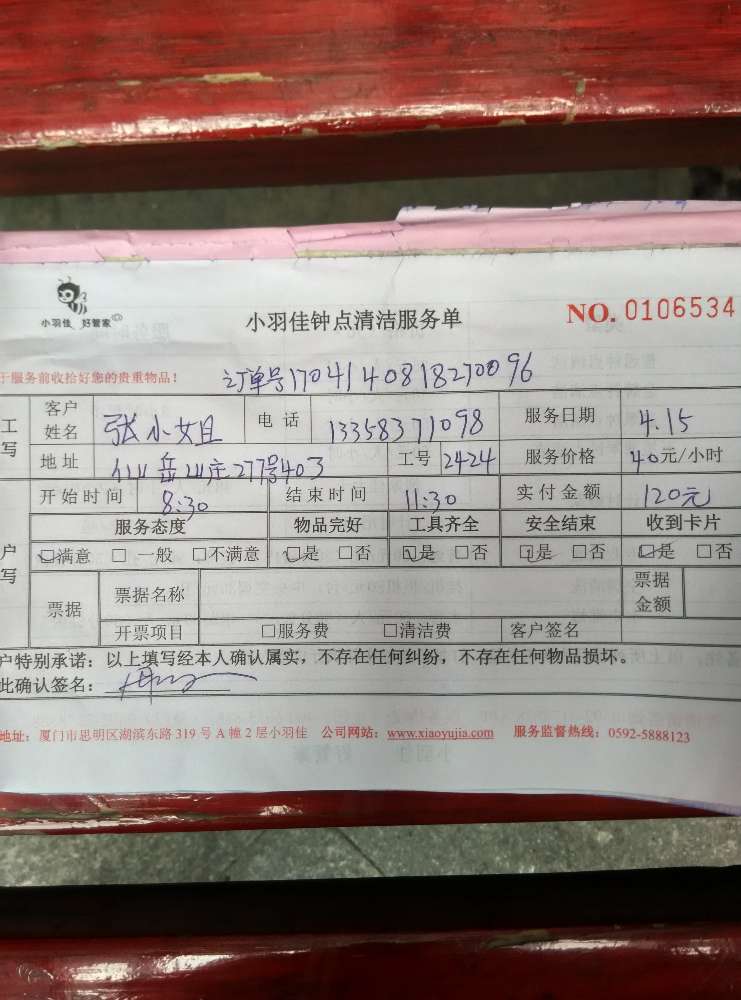 小羽佳 好管家
小羽佳钟点清洁服务单
NO. 0106534
于服务前收拾好您的贵重物品!
订单号1704140818270096
工 客户姓名 张小姐 电话 13358371098 服务日期 4.15
写 地址 仙岳山庄277号403 工号 2424 服务价格 40元/小时
开始时间 8:30 结束时间 11:30 实付金额 120元
服务态度 物品完好 工具齐全 安全结束 收到卡片
户 ☑满意 □一般 □不满意 ☑是 □否 ☑是 □否 ☑是 □否 ☑是 □否
写 票据 票据名称 票据金额
开票项目 □服务费 □清洁费 客户签名
户特别承诺:以上填写经本人确认属实,不存在任何纠纷,不存在任何物品损坏。
此确认签名:
地址:厦门市思明区湖滨东路 319 号 A 幢 2 层小羽佳 公司网站:www.xiaoyujia.com 服务监督热线:0592-5888123